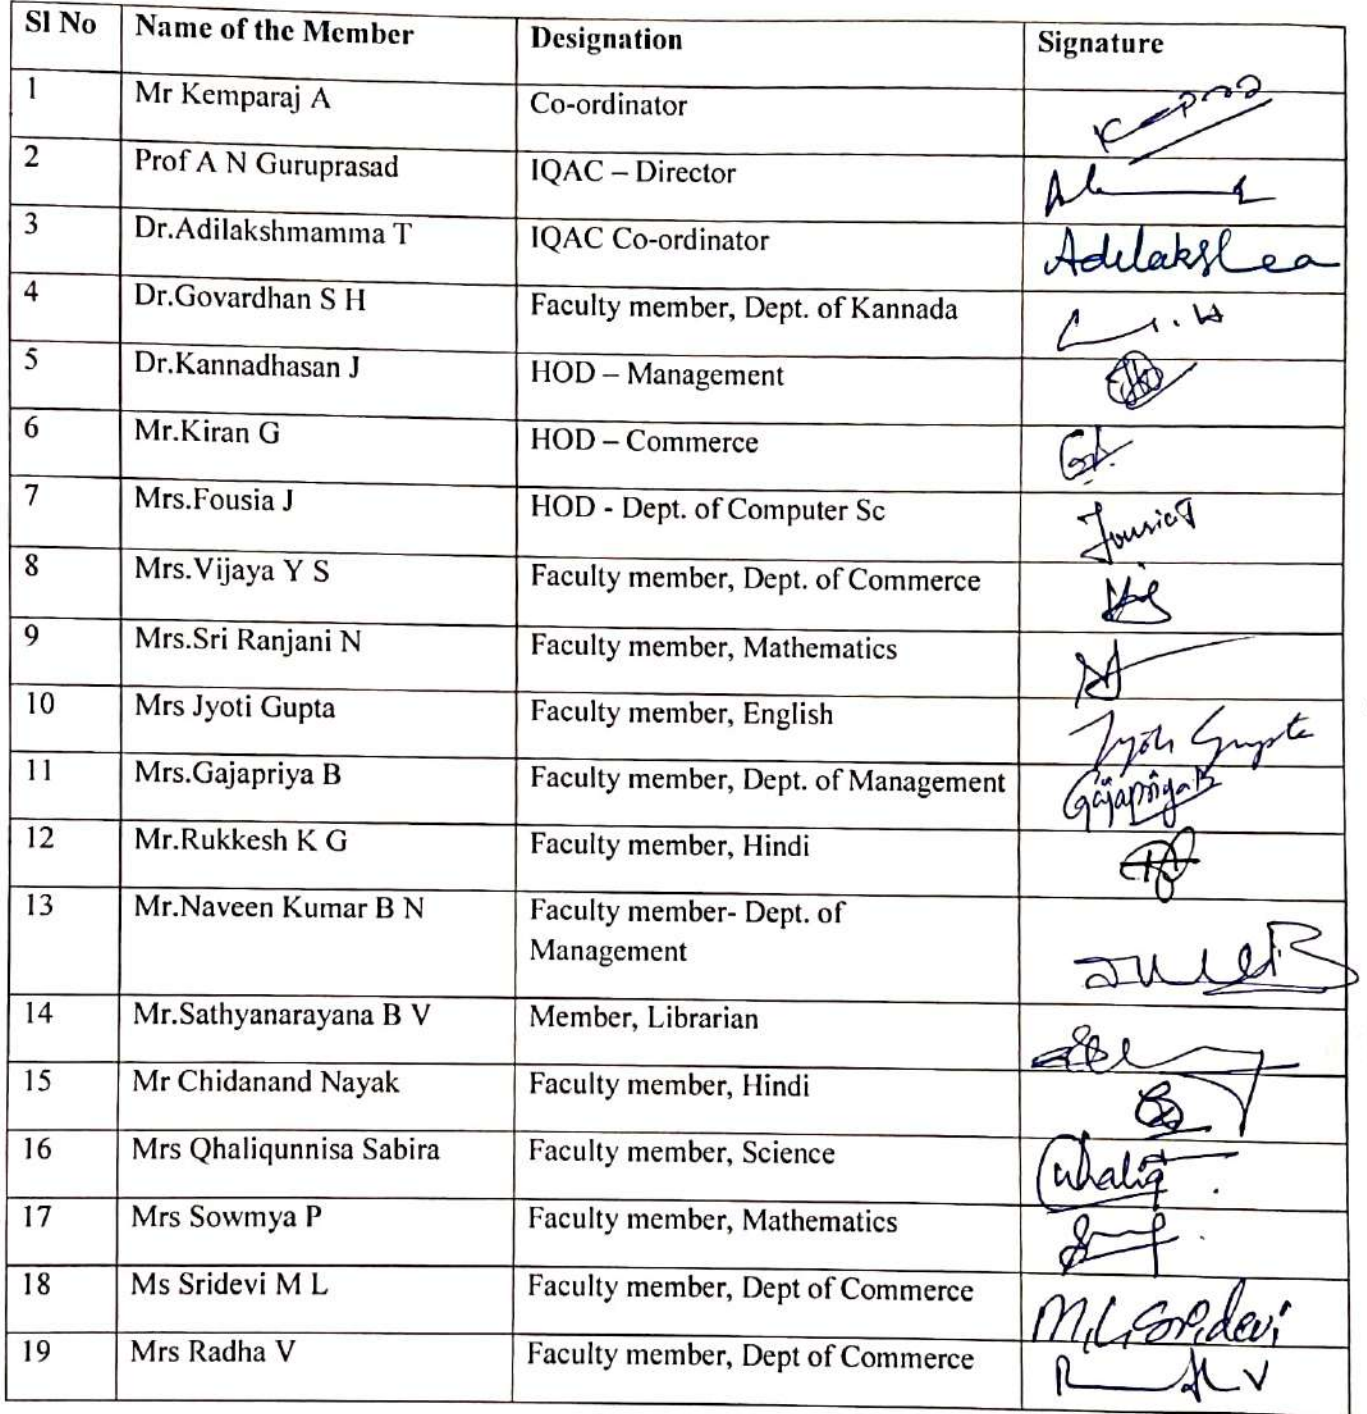 Sl No Name of the Member Designation Signature
1 Mr Kemparaj A Co-ordinator
2 Prof A N Guruprasad IQAC – Director
3 Dr.Adilakshmamma T IQAC Co-ordinator
4 Dr.Govardhan S H Faculty member, Dept. of Kannada
5 Dr.Kannadhasan J HOD – Management
6 Mr.Kiran G HOD – Commerce
7 Mrs.Fousia J HOD - Dept. of Computer Sc
8 Mrs.Vijaya Y S Faculty member, Dept. of Commerce
9 Mrs.Sri Ranjani N Faculty member, Mathematics
10 Mrs Jyoti Gupta Faculty member, English Jyoti Gupta
11 Mrs.Gajapriya B Faculty member, Dept. of Management Gajapriya B
12 Mr.Rukkesh K G Faculty member, Hindi
13 Mr.Naveen Kumar B N Faculty member- Dept. of
Management
14 Mr.Sathyanarayana B V Member, Librarian
15 Mr Chidanand Nayak Faculty member, Hindi
16 Mrs Qhaliqunnisa Sabira Faculty member, Science
17 Mrs Sowmya P Faculty member, Mathematics
18 Ms Sridevi M L Faculty member, Dept of Commerce M.L.Sridevi
19 Mrs Radha V Faculty member, Dept of Commerce